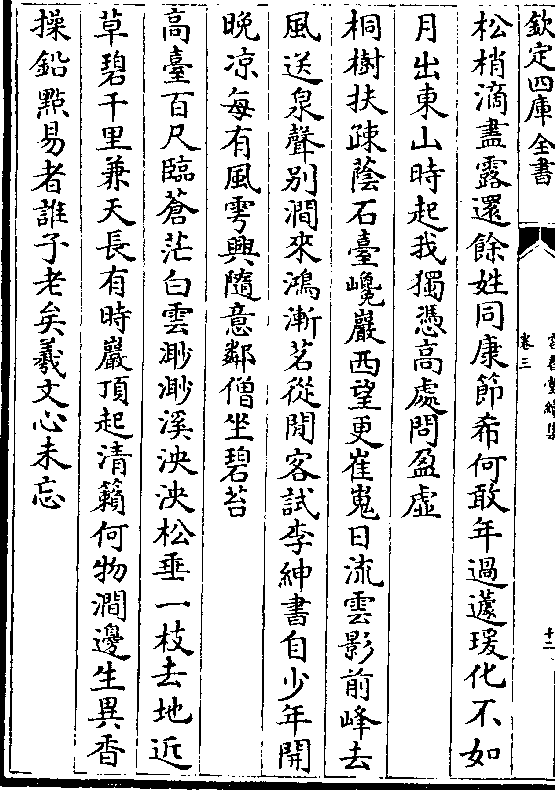 欽定四庫全書
卷三
十二
松梢滴盡露還餘姓同康節希何敢年過蘧瑗化不如
月出東山時起我獨憑高處問盈虛
桐樹扶疎蔭石臺巉巖西望更崔嵬日流雲影前峰去
風送泉聲别澗來鴻漸茗從閒客試李紳書自少年開
晚凉每有風雩興隨意鄰僧坐碧苔
高臺百尺臨蒼茫白雲渺渺溪泱泱松垂一枝去地近
草碧千里兼天長有時巖頂起清籟何物澗邊生異香
操鉛㸃易者誰子老矣羲文心未忘